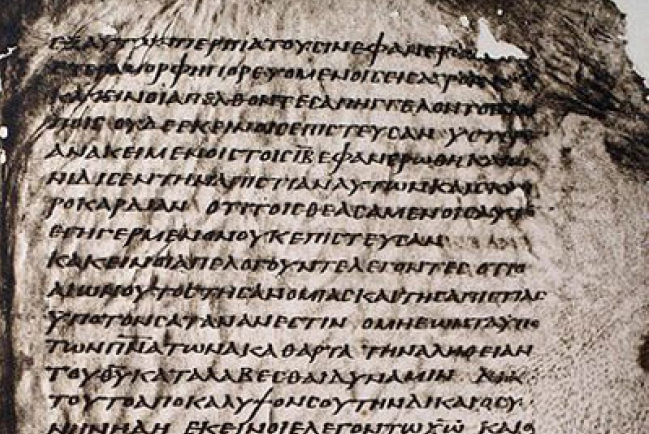 ΕΞ ΑΥΤΩΝ ΠΕΡΙΠΑΤΟΥϹΙΝ ΕΦΑΝΕΡΩΘΗ
ΕΤΕΡΑ ΜΟΡΦΗ ΠΟΡΕΥΟΜΕΝΟΙϹ ΕΙϹ ΑΓΡΟΝ
ΚΑΚΕΙΝΟΙ ΑΠΕΛΘΟΝΤΕϹ ΑΠΗΓΓΕΛΟΝ
ΠΟΙϹ ΟΥΔΕ ΕΚΕΙΝΟΙϹ ΕΠΙϹΤΕΥϹΑΝ ΥϹΤΕΡΟΝ
ΑΝΑΚΕΙΜΕΝΟΙϹ ΤΟΙϹ ΕΦΑΝΕΡΩΘΗ ΚΑΙ
ΝΙΔΙϹΕΝ ΤΗΝ ΑΠΙϹΤΙΑΝ ΑΥΤΩΝ ΚΑΙ
ΡΟΚΑΡΔΙΑΝ ΟΤΙ ΤΟΙϹ ΘΕΑϹΑΜΕΝΟΙϹ ΑΥΤΟΝ
ΕΓΗΓΕΡΜΕΝΟΝ ΟΥΚ ΕΠΙϹΤΕΥϹΑΝ
ΚΑΚΕΙΝΟΙ ΑΠΕΛΟΓΟΥΝΤΕ ΛΕΓΟΝΤΕϹ ΟΤΙ Ο
ΑΙΩΝ ΟΥΤΟϹ ΤΗϹ ΑΝΟΜΙΑϹ ΚΑΙ ΤΗϹ ΑΠΙϹΤΙΑϹ
ΥΠΟ ΤΟΝ ϹΑΤΑΝΑΝ ΕϹΤΙΝ Ο ΜΗ ΕΩΝ ΤΑ ΥΠΟ
ΤΩΝ Π̅Ν̅ΑΤΩΝ ΑΚΑΘΑΡΤΑ ΤΗΝ ΑΛΗΘΕΙΑΝ
ΤΟΥ Θ̅Υ̅ ΚΑΤΑΛΑΒΕϹΘΑΙ ΔΥΝΑΜΙΝ ΔΙΑ
ΤΟΥΤΟ ΑΠΟΚΑΛΥΨΟΝ ϹΟΥ ΤΗΝ ΔΙΚΑΙΟϹΥ
ΝΗΝ ΗΔΗ ΕΚΕΙΝΟΙ ΕΛΕΓΟΝ ΤΩ Χ̅Ω̅ ΚΑΙ Ο